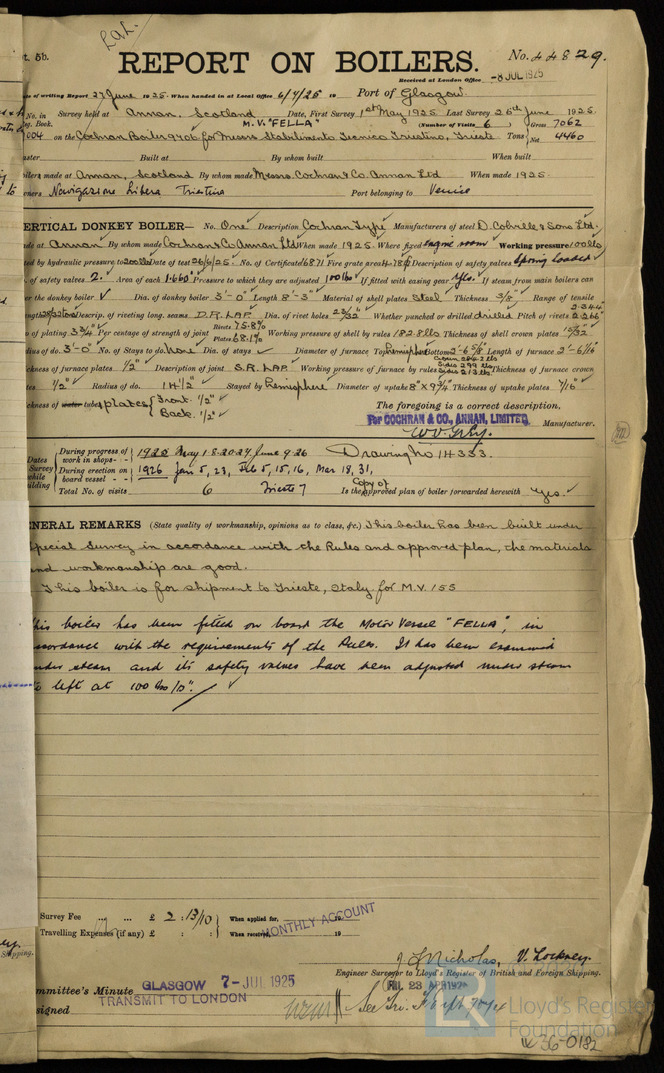 L.a.L.
t. 5b.
REPORT ON BOILERS.
No. 44829.
Received at London Office -8 JUL 1925
te of writing Report 27 June 1925. When handed in at Local Office 6/7/25 19 Port of Glasgow
No. in Survey held at Annan. Scotland Date, First Survey 1st May 1925 Last Survey 26th June 1925.
eg. Book. M.V. "FELLA" (Number of Visits 6 ) Gross 7062
004 on the Cochran Boiler 9406 for Messrs Stabilimento Tecnico Triestino, Trieste Tons Net 4460
aster Built at By whom built When built
oilers made at Annan, Scotland By whom made Messrs. Cochran & Co. Annan Ltd When made 1925.
wners Navigazione Libera Triestina Port belonging to Venice
ERTICAL DONKEY BOILER— No. One Description Cochran Type Manufacturers of steel D. Colville & Sons Ltd.
de at Annan By whom made Cochran & Co Annan Ltd When made 1925. Where fixed Engine room Working pressure 100 lbs
ted by hydraulic pressure to 200 lbs Date of test 26/6/25. No. of Certificate 6871 Fire grate area Description of safety valves Spring Loaded
. of safety valves 2. Area of each Pressure to which they are adjusted 100 lbs If fitted with easing gear Yes. If steam from main boilers can
er the donkey boiler ✓ Dia. of donkey boiler 3'-0" Length 8"-3" Material of shell plates Steel Thickness 3/8" Range of tensile
ngth 28/32 tons Descrip. of riveting long. seams D.R. LAP. Dia. of rivet holes 23/32" Whether punched or drilled drilled Pitch of rivets 2.344 2.266"
of plating 3 3/4" Per centage of strength of joint Rivets 75.8% Plates 68.1% Working pressure of shell by rules 182.8 lbs Thickness of shell crown plates 15/32"
dius of do. 3'-0" No. of Stays to do. None Dia. of stays ✓ Diameter of furnace Top Hemisphere Bottom 2'-6 5/8" Length of furnace 2'-6 1/16"
ckness of furnace plates 1/2" Description of joint S.R. LAP. Working pressure of furnace by rules Thickness of furnace crown
tes 1/2" Radius of do. 1H 1/2" Stayed by Hemisphere Diameter of uptake 8" X 9 3/4" Thickness of uptake plates 7/16"
ckness of water tubes plates Front 1/2" Back. 1/2"
The foregoing is a correct description,
For COCHRAN & CO., ANNAN, LIMITED. Manufacturer.
Dates
Survey
while
uilding
During progress of work in shops - - 1925 May 1-8.20.27 June 9.26 Drawing No 14333.
During erection on board vessel - - - 1926 Jan 5, 23, Feb 5, 15, 16, Mar 18, 31,
Total No. of visits 6 Trieste 7 Is the Copy of approved plan of boiler forwarded herewith Yes.
ENERAL REMARKS (State quality of workmanship, opinions as to class, &c.) This boiler has been built under
pecial Survey in accordance with the Rules and approved plan, the materials
and workmanship are good.
This boiler is for shipment to Trieste, Italy for M.V. 155
his boiler has been fitted on board the Motor Vessel "FELLA", in
accordance with the requirements of the Rules. It has been examined
under steam and its safety valves have been adjusted under steam
to left at 100 lbs/□".
Survey Fee ... ... £ 2 : 13/10 When applied for, 19
Travelling Expenses (if any) £ : : When received, 19
MONTHLY ACCOUNT
J. Nicholas, V. Lockney.
Engineer Surveyor to Lloyd's Register of British and Foreign Shipping.
Shipping.
ommittee's Minute GLASGOW 7-JUL 1925
TRANSMIT TO LONDON
FRI. 23 APR 1926
signed
Lloyd's Register
Foundation
W36-0182